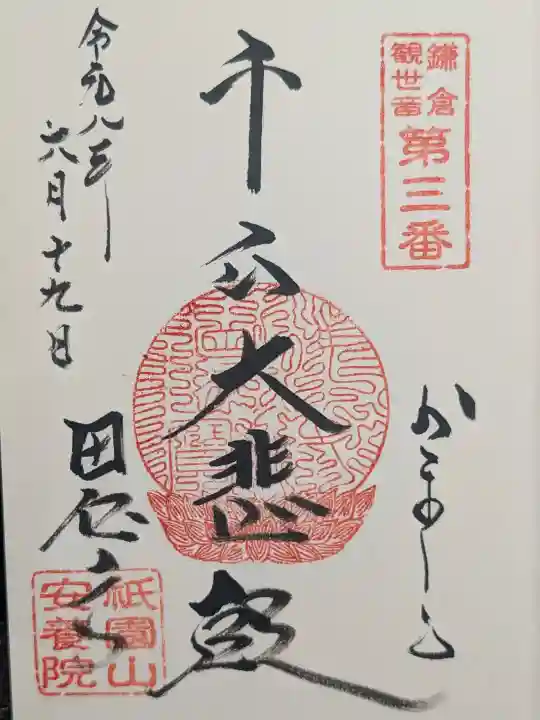 鎌倉
観世音
第三番
千手大悲殿
令和八年
六月十九日
田代寺
祇園山
安養院